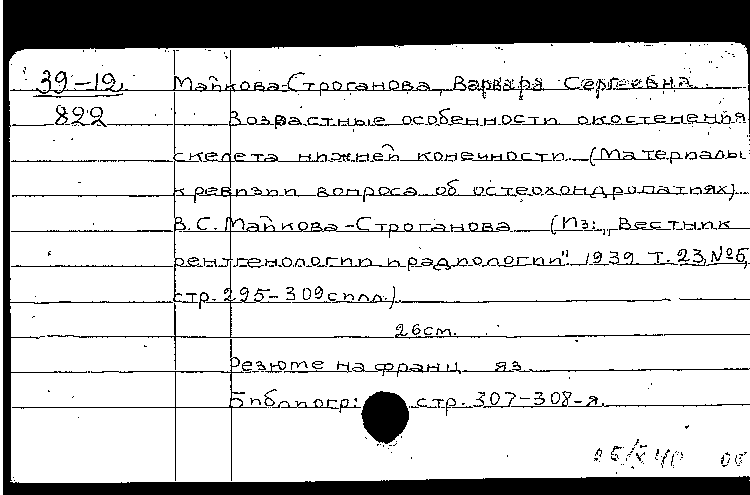 39-19
822
Майкова-Строганова, Варвара Сергеевна.
Возрастные особенности окостенения
скелета нижней конечности. (Материалы
к ревизии вопроса об остеохондропатиях)
В.С. Майкова-Строганова (Из: „Вестник
рентгенологии и радиологии". 1939. Т. 23, № 5,
стр. 295-309 с илл.)
26 см.
Резюме на франц. яз.
Библиогр: стр. 307-308-я.